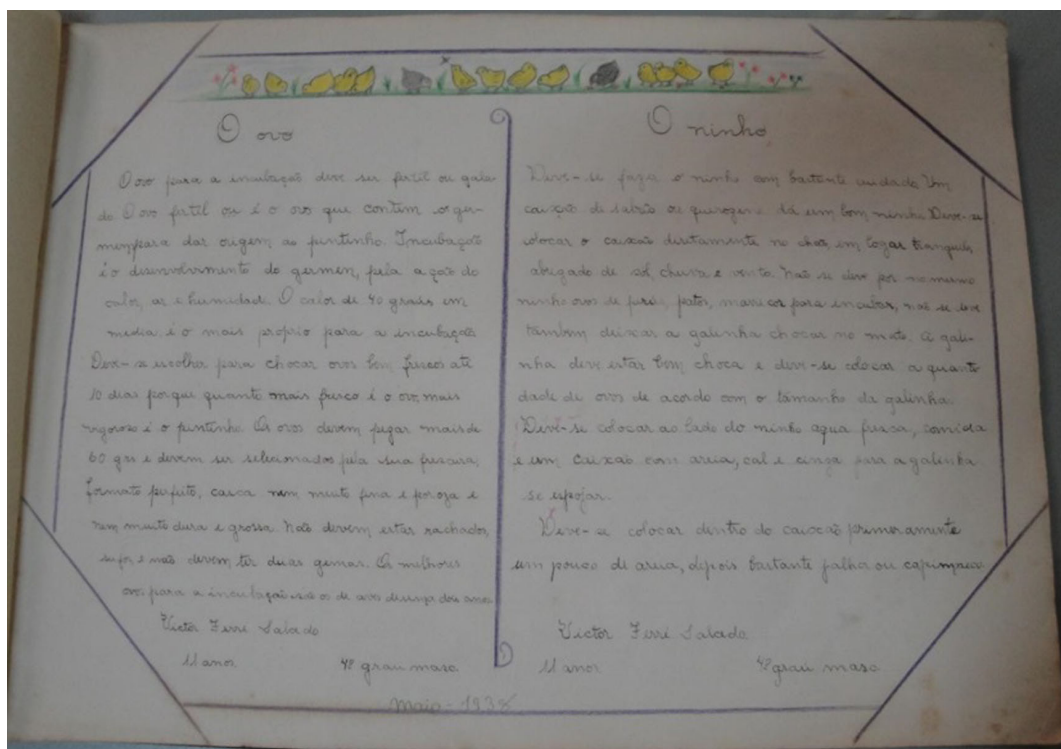 O ovo
O ovo para a incubação deve ser fertil ou gala
do. O ovo fertil ou é o ovo que contem o ger-
men, para dar origem ao pintinho. Incubação
é o disenvolvimento do germen, pela ação do
calor, ar e humidade. O calor de 40 graus em
media é o mais proprio para a incubação
Deve-se escolher para chocar ovos bem frescos até
10 dias porque quanto mais fresco é o ovo, mais
vigoroso é o pintinho. Os ovos devem pegar mais de
60 grs e devem ser selecionados pela sua
formato perfeito, casca nem muito fina e poroza e
nem muito dura e grossa. Não devem estar rachados,
sujos e não devem ter duas gemas. Os melhores
ovos para a incubação são os de aves de dois anos
Victor Ferré Salado
11 anos 4º grau masc.
O ninho
Deve-se fazer o ninho com bastante cuidado. Um
caixão de sabão ou quirozene dá um bom ninho. Deve-se
colocar o caixão diretamente no chão, em logar tranquilo,
abrigado de sol, chuva e vento. Não se deve por no mesmo
ninho ovos de perú, patos, para encubar, não se deve
tambem deixar a galinha chocar no mato. A gali-
nha deve estar bem choca e deve-se colocar a quanti
dade de ovos de acordo com o tamanho da galinha.
Deve-se colocar ao lado do ninho agua fresca, comida
e um caixão com areia, cal e cinza para a galinha
se espojar.
Deve-se colocar dentro do caixão primeramente
um pouco de areia, depois bastante palha ou capim seco.
Victor Ferré Salado
11 anos 4º grau masc.
Maio - 1938